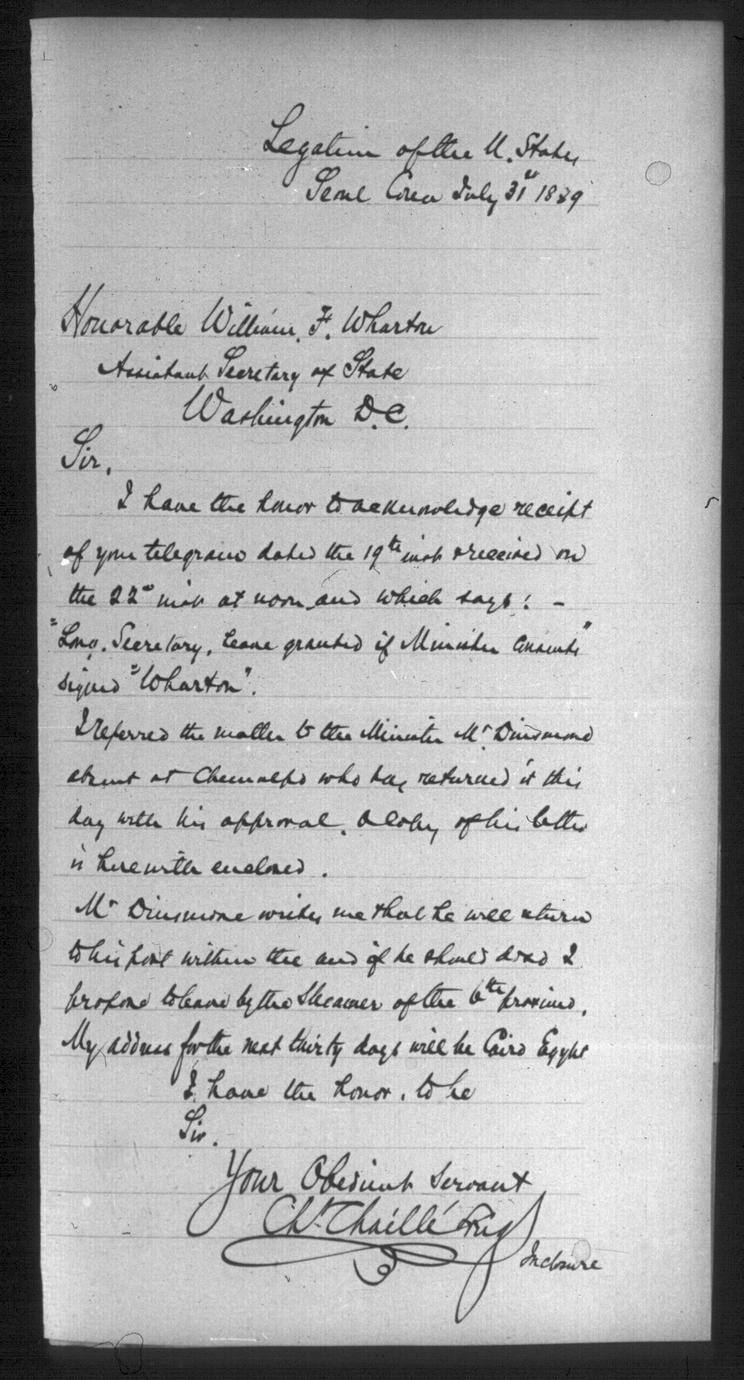 Legation of the U. States
Seoul Corea July 31st 1889
Honorable William. F. Wharton
Assistant Secretary of State
Washington D.C.
Sir,
I have the honor to acknowledge receipt
of your telegram dated the 19th inst & received on
the 22nd inst at noon and which says: –
"Long. Secretary, leave granted if Minister consents"
signed "Wharton".
I referred the matter to the Minister Mr Dinsmore
absent at Chemulpo who has returned it this
day with his approval. A copy of his letter
is herewith enclosed.
Mr Dinsmore writes me that he will return
to his post within the and if he should do so I
propose to leave by the Steamer of the 6th proximo.
My address for the next thirty days will be Cairo Egypt
I have the honor. to be
Sir.
Your Obedient Servant
Chs. Chaillé Long
Inclosure